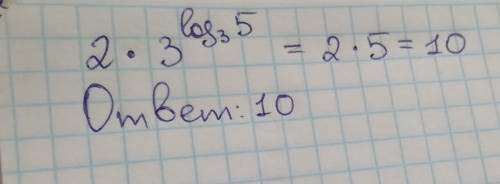 2 · 3^log₃5 = 2 · 5 = 10
Ответ: 10